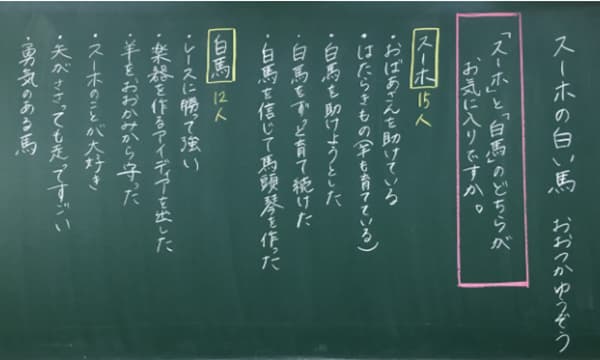 スーホの白い馬　おおつかゆうぞう
「スーホ」と「白馬」のどちらが
お気に入りですか。
スーホ 15人
・おばあさんを助けている
・はたらきもの(羊も育てている)
・白馬を助けようとした
・白馬をずっと育て続けた
・白馬を信じて馬頭琴を作った
白馬 12人
・レースに勝って強い
・楽器を作るアイディアを出した
・羊をおおかみから守った
・スーホのことが大好き
・矢がささっても走ってすごい
・勇気のある馬